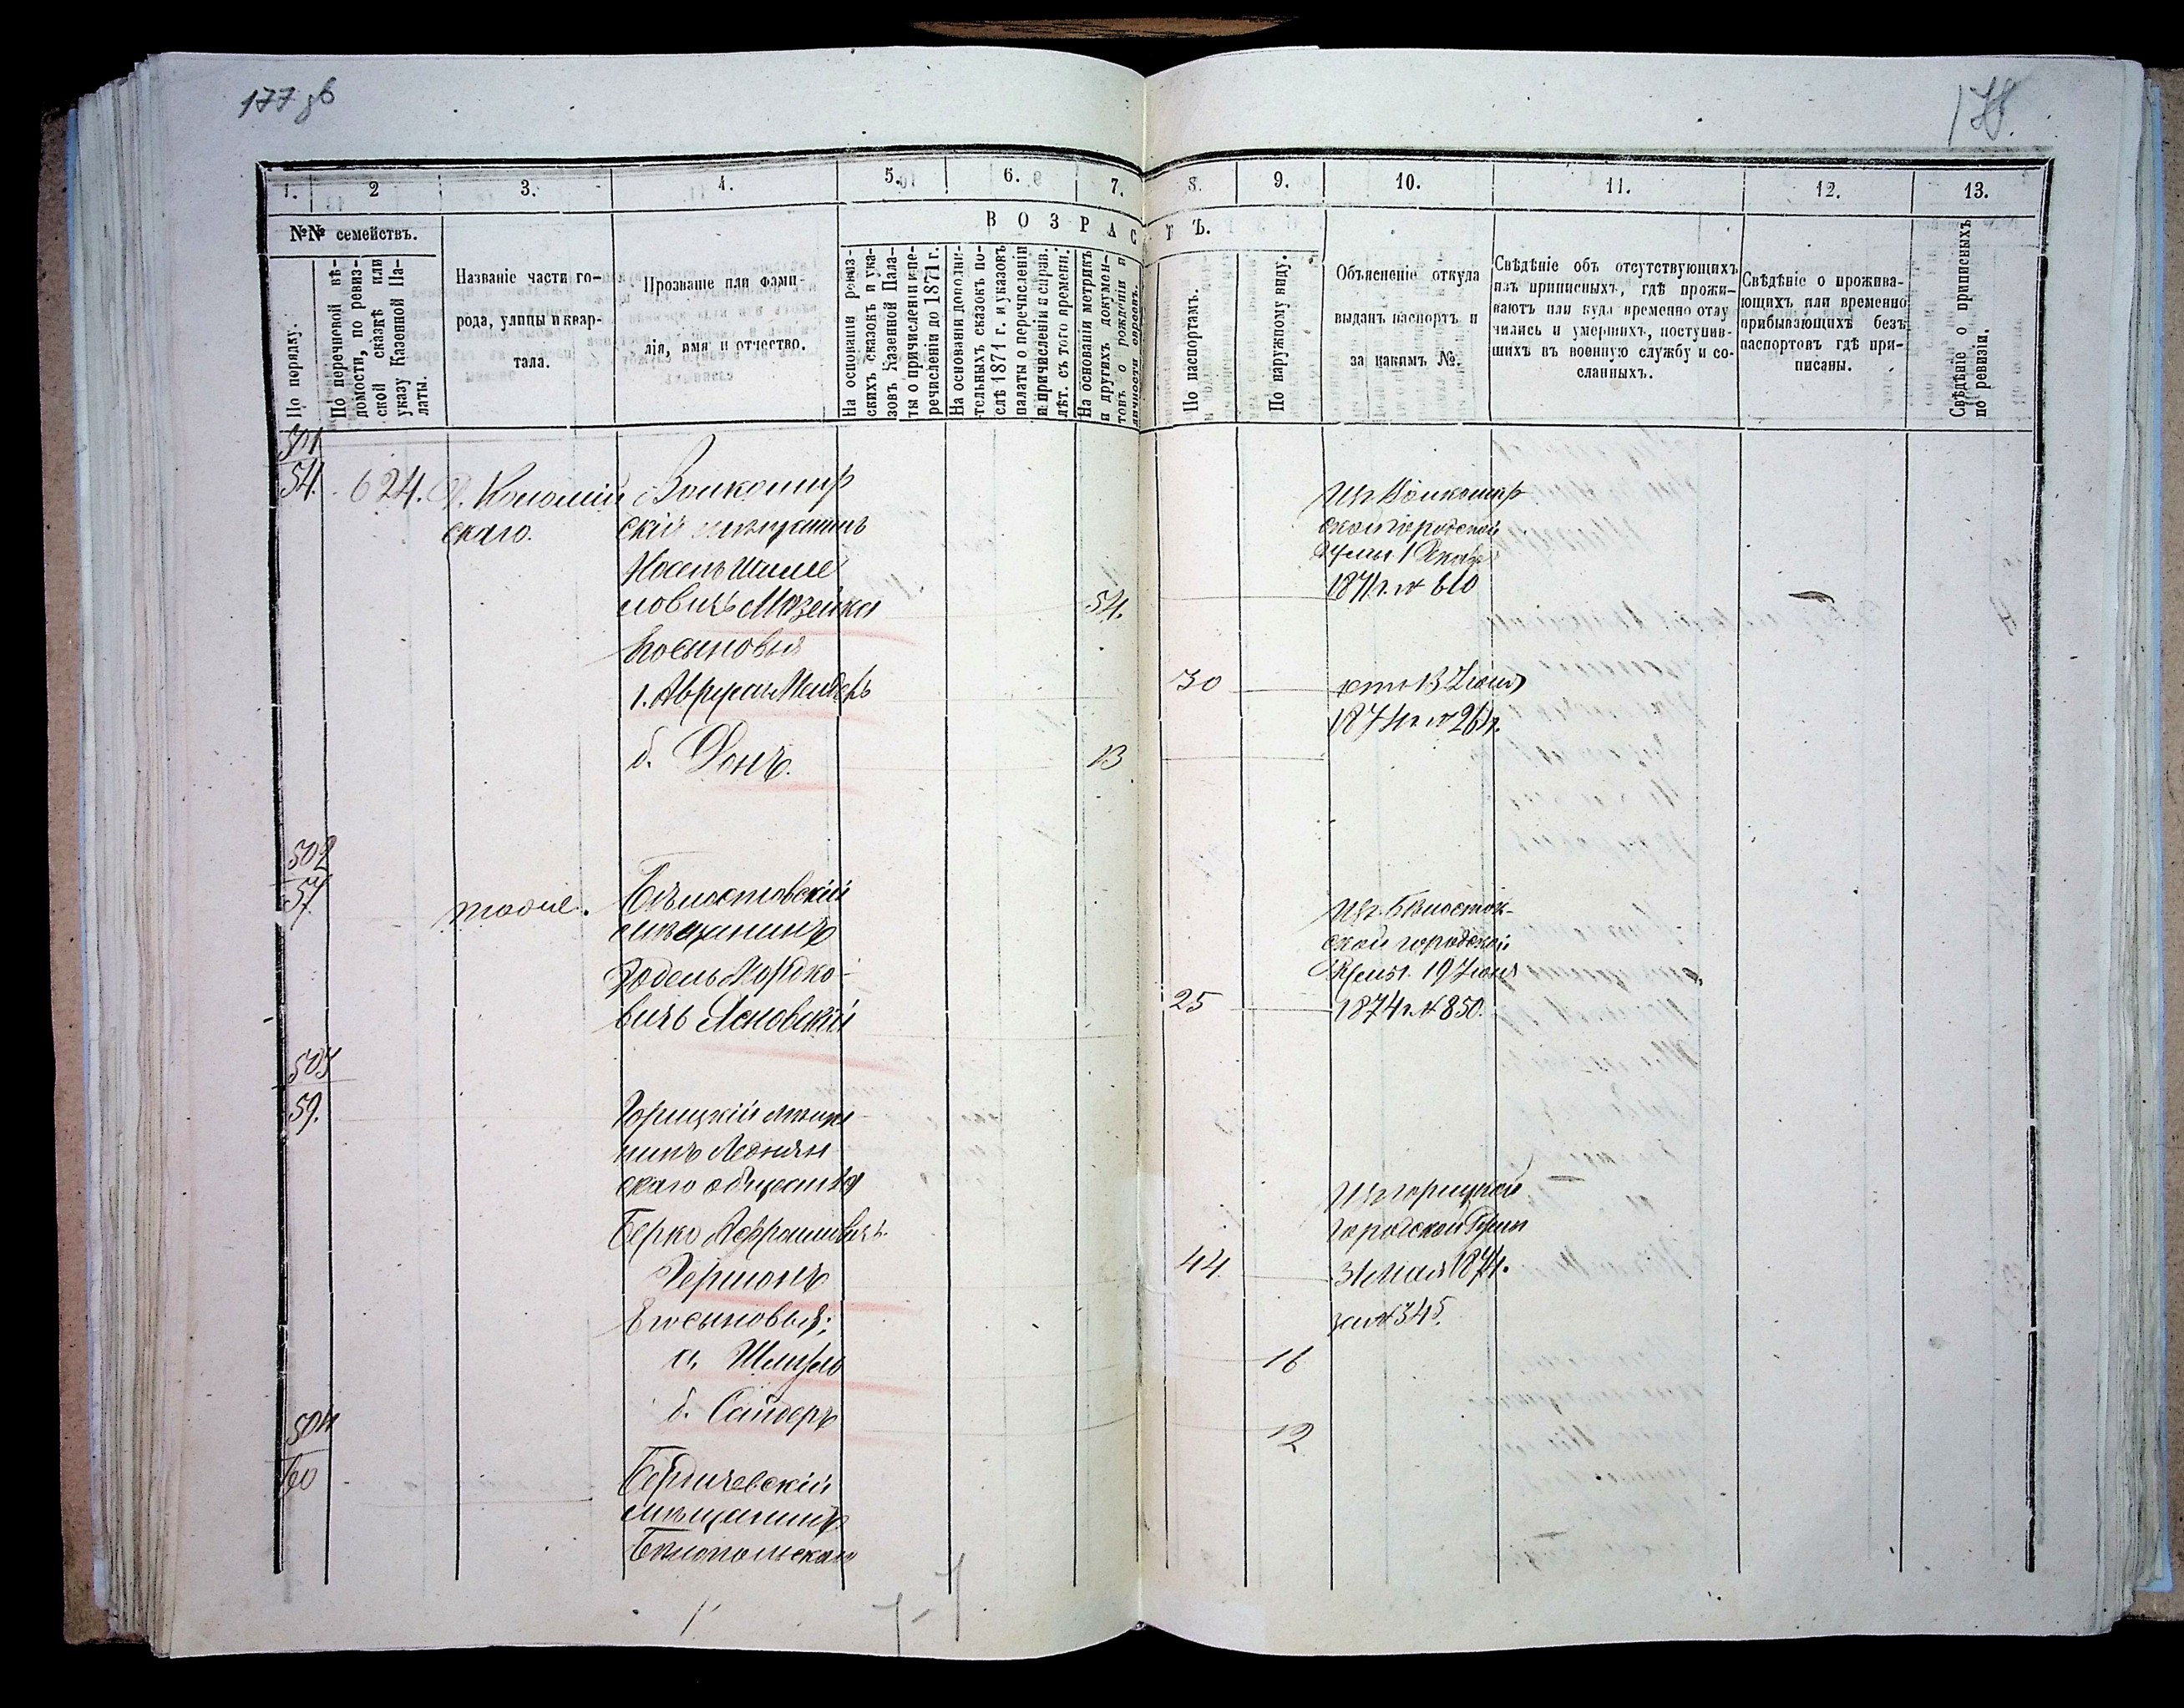 177 об
178.
1.
2
3.
4.
5.
6.
7.
8.
9.
10.
11.
12.
13.
№№ семействъ.
ВОЗРАСТЪ.
По порядку.
По перечневой вѣ-
домости, по ревиз-
ской сказкѣ или
указу Казенной Па-
латы.
Названіе части го-
рода, улицы и квар-
тала.
Прозваніе или фами-
лія, имя и отчество.
На основаніи ревиз-
скихъ сказокъ и ука-
зовъ Казенной Пала-
ты о причисленіи и пе-
речисленіи до 1871 г.
На основаніи дополни-
тельныхъ сказокъ по-
слѣ 1871 г. и указовъ
палаты о перечисленіи
и причисленіи и справ.
лѣт. съ того времени.
На основаніи метрикъ
и другихъ докумен-
товъ о рожденіи и
личности евреевъ.
По паспортамъ.
По наружному виду.
Объясненіе откуда
выданъ паспортъ и
за какимъ №.
Свѣдѣніе объ отсутствующихъ
изъ приписныхъ, гдѣ прожи-
ваютъ или куда временно отлу
чились и умершихъ, поступив-
шихъ въ военную службу и со-
сланныхъ.
Свѣдѣніе о прожива-
ющихъ или временно
прибывающихъ безъ
паспортовъ гдѣ при-
писаны.
Свѣдѣніе о приписныхъ
по ревизіи.
501
54. 624.
скаго.
Вилкомир
скій мѣщанинъ
Носель Шме
ловичъ
54.
Изъ Вилкомир
ской городской
Думы 1 Декабр
1871 г. № 610
Его сыновья
1. Абрамъ Мендель
30
13 Іюня
1874 г. №
б.
13
502
57
тоже.
Бѣлостокскій
мѣщанинъ
вичъ Ясновскій
25
Изъ Бѣлосток-
ской городской
Думы. 19 Іюня
1874 г. № 850.
503
59.
Горицкій мѣща
нинъ
скаго общества
Берко
44
Изъ Горицкой
городской Думы
31 Мая 1874.
за № 345.
Его сыновья:
а. Шмуль
16
б.
12
504
60
Бердичевскій
мѣщанинъ
Бѣлопольскаго